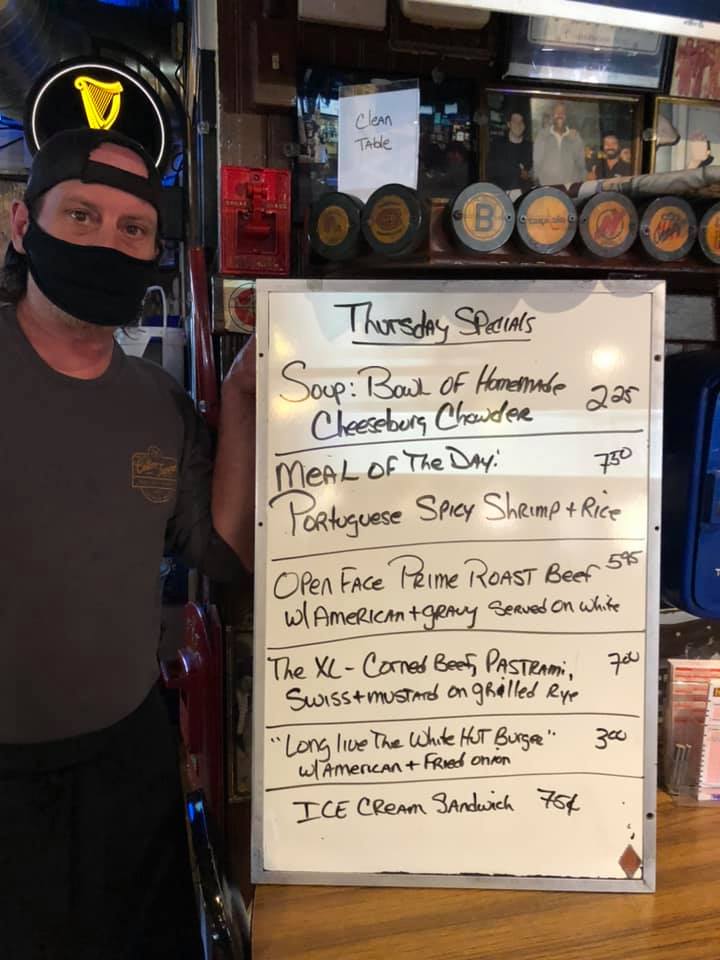 Clean
Table
B
Thursday Specials
Soup: Bowl of Homemade 2.25
Cheeseburg Chowder
Meal of The Day: 7.50
Portuguese Spicy Shrimp + Rice
Open Face Prime Roast Beef 5.95
w/ American + gravy served on white
The XL - Corned Beef, Pastrami, 7.00
Swiss + mustard on grilled Rye
"Long live The White Hut Burger" 3.00
w/ American + Fried onion
Ice Cream Sandwich 75¢